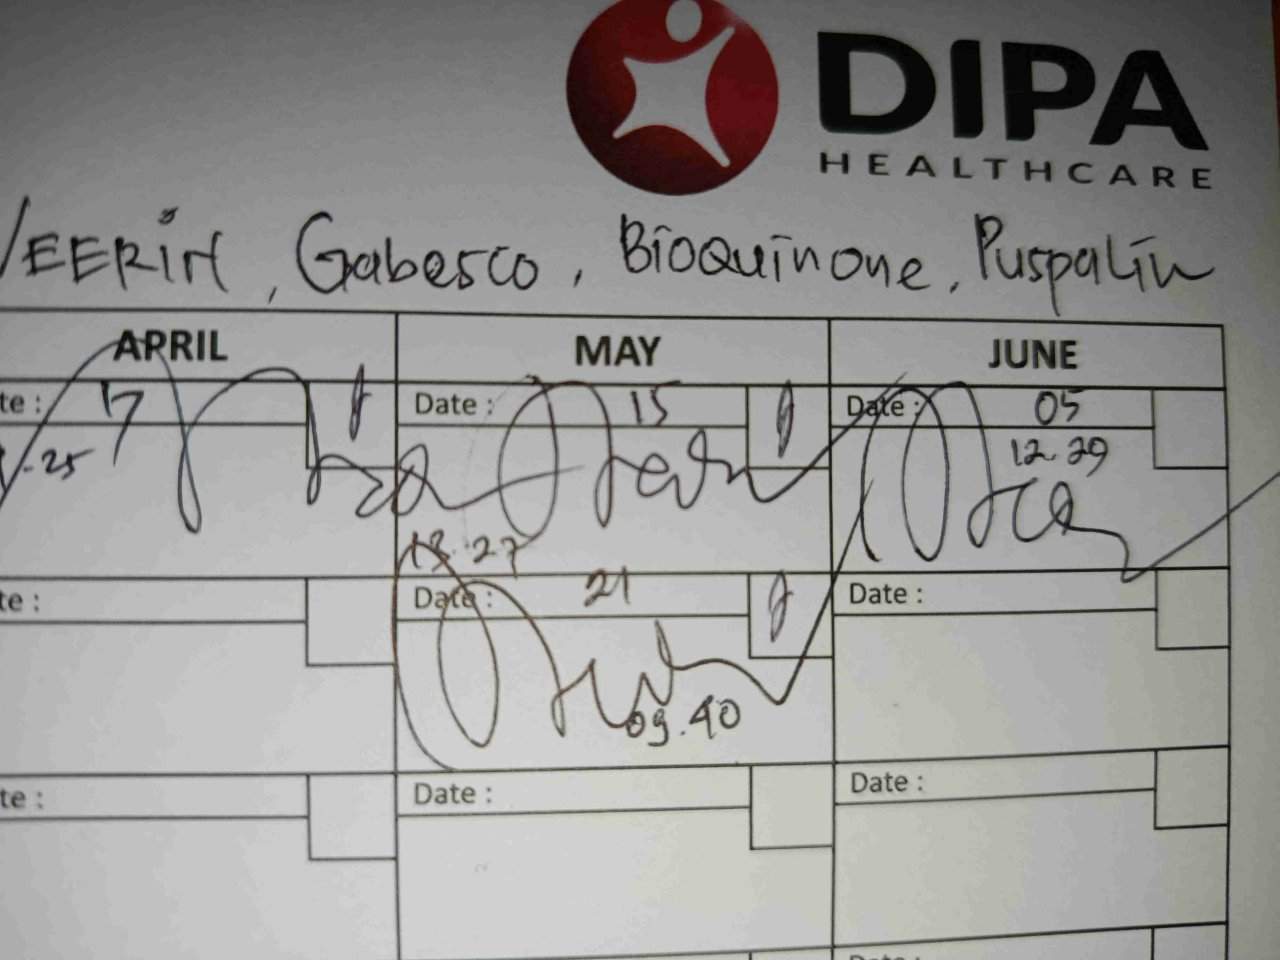 DIPA
HEALTHCARE
, Gabesco, Bioquinone, Puspalin
APRIL MAY JUNE
te : 17 Date : 15 Date : 05
.25 12.29
13.27
te : Date : 21 Date :
09.40
te : Date : Date :